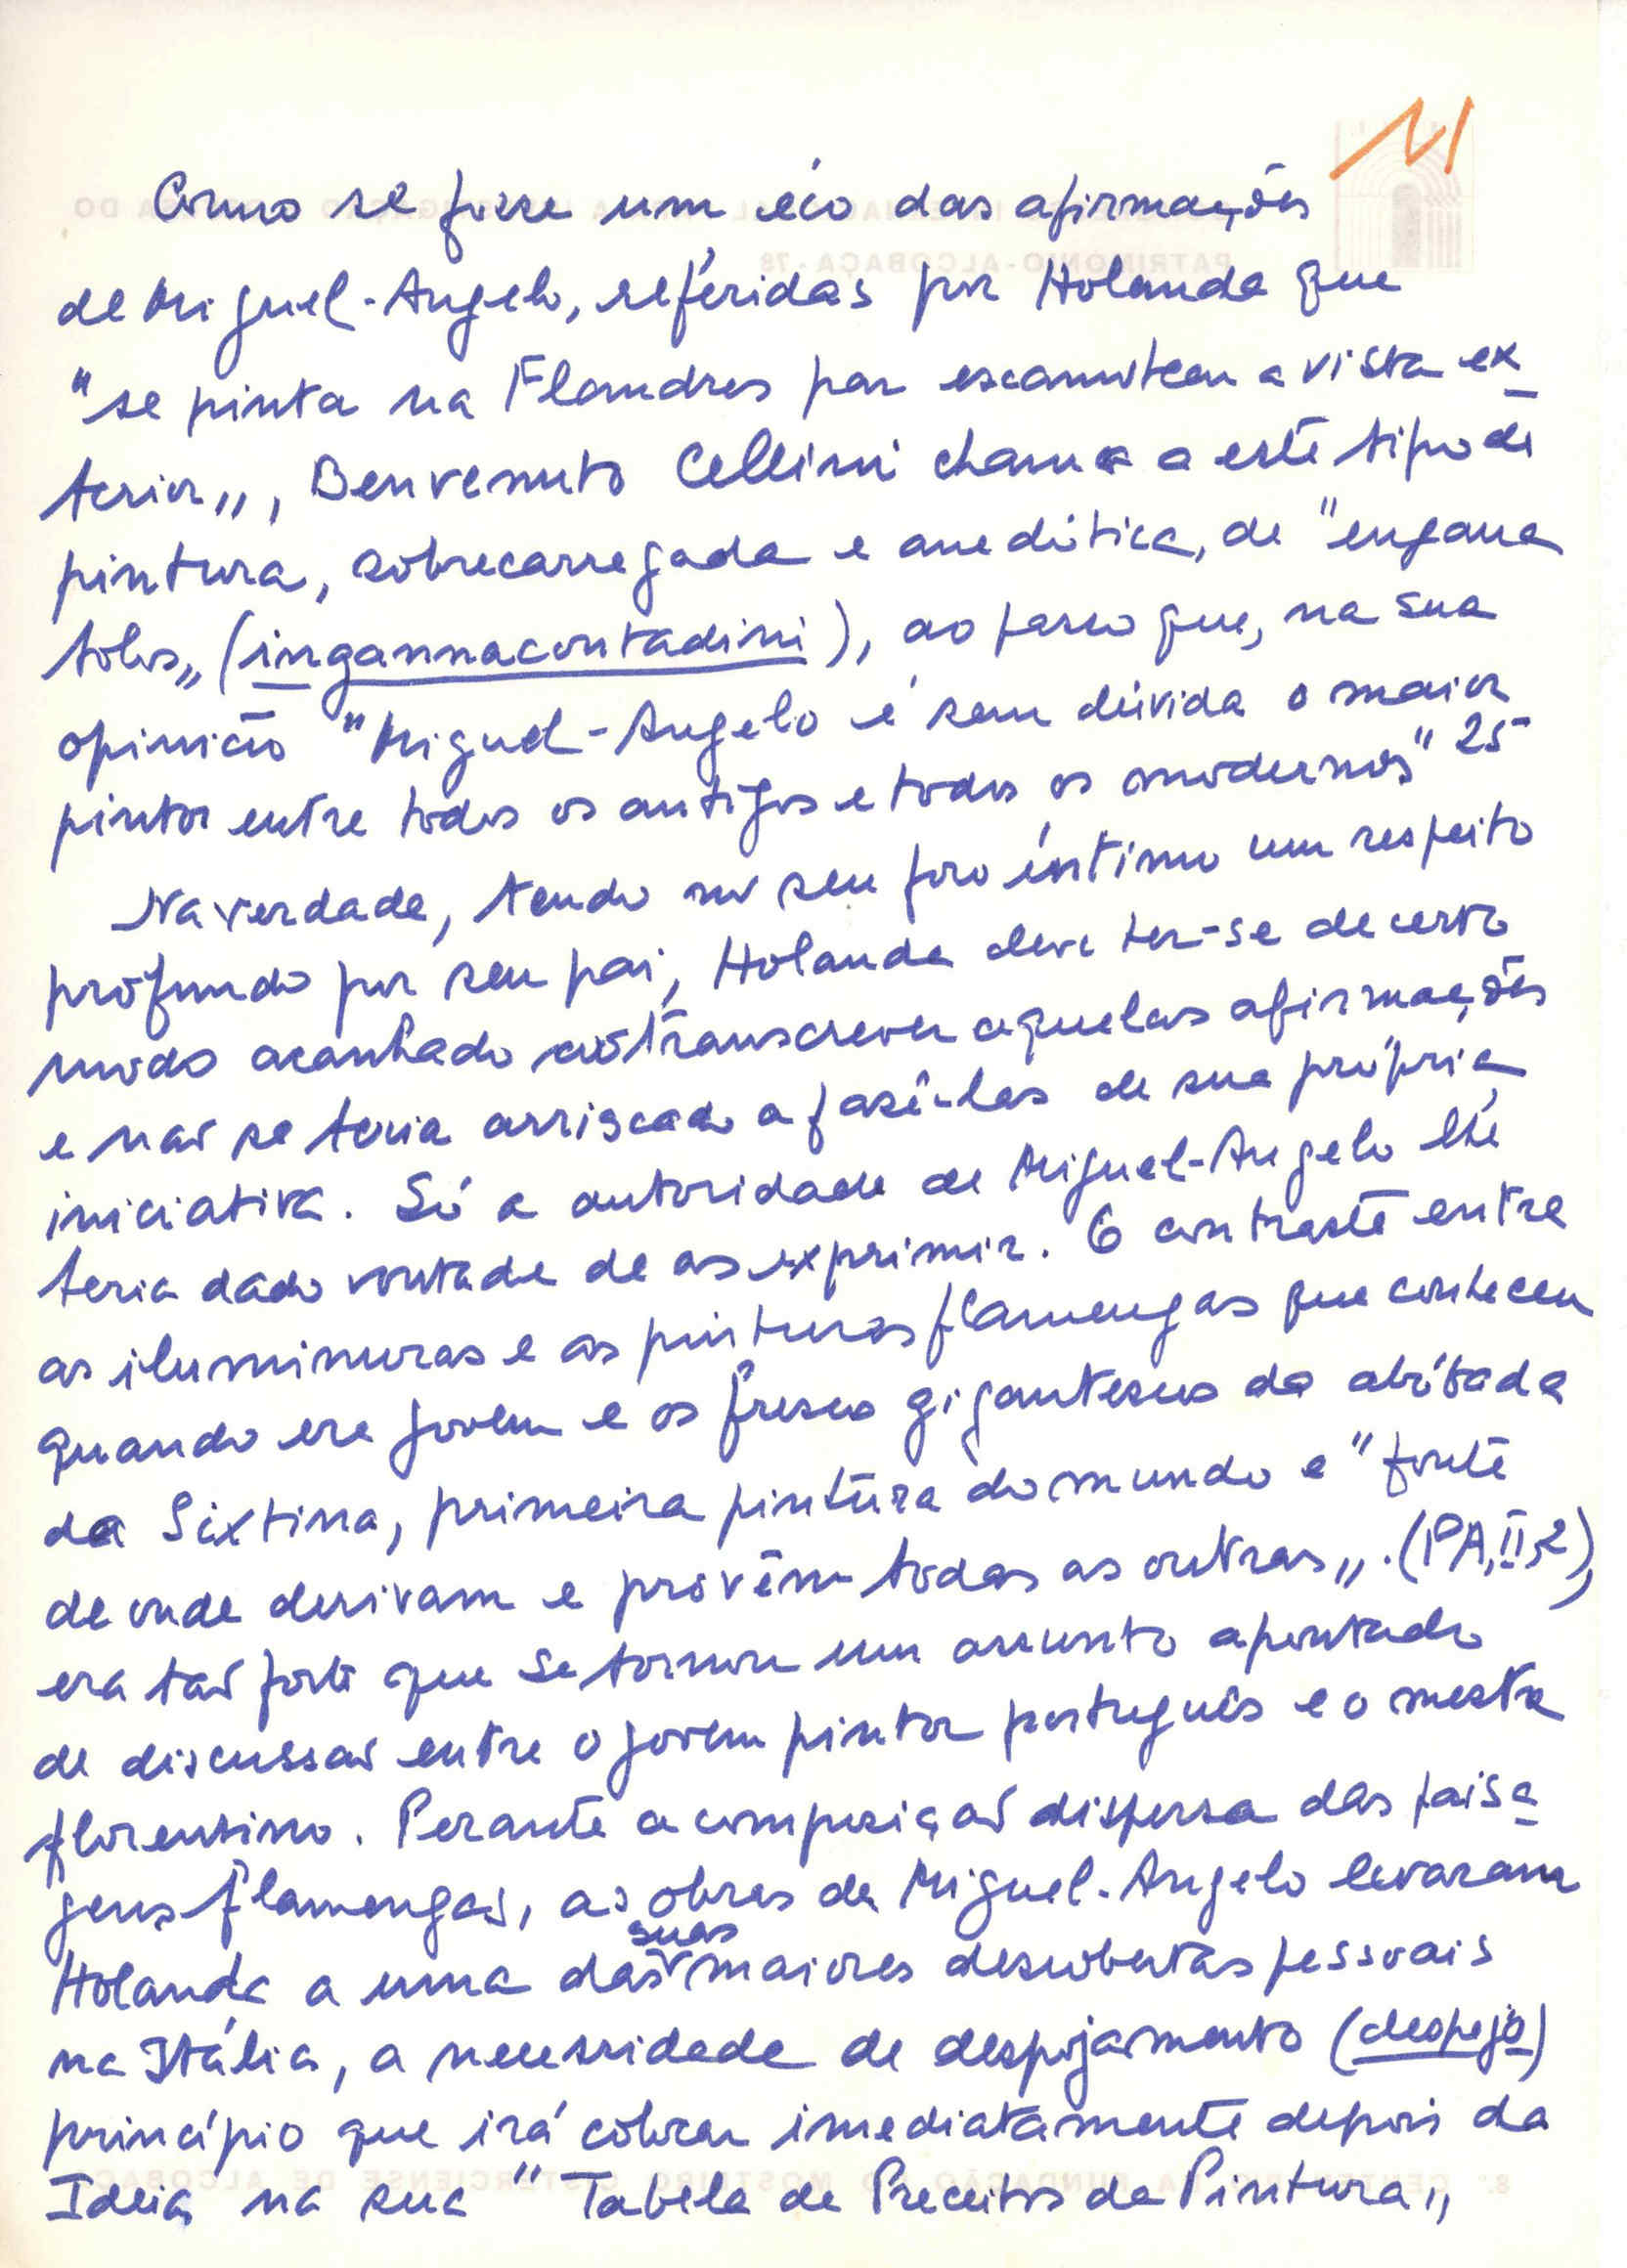 11
Como se fosse um éco das afirmações
de Miguel-Angelo, reféridas por Holanda que
"se pinta na Flandres par escamotear a vista ex
terior„, Benvenuto Cellini chama a este tipo de
pintura, sobrecarregada e anedótica, de "engana
tolos„ (ingannacontadini), ao passo que, na sua
opinião "Miguel-Angelo é sem dúvida o maior
pintor entre todos os antigos e todos os modernos" 25
Na verdade, tendo no seu foro íntimo um respeito
profundo por seu pai, Holanda deve ter-se de certo
modo acanhado ao transcrever aquelas afirmações
e não se teria arriscado a fazê-las de sua própria
iniciativa. Só a autoridade de Miguel-Angelo lhe
teria dado vontade de as exprimir. O contraste entre
as iluminuras e as pinturas flamengas que conheceu
quando era jovem e os frescos gigantescos da abóbada
da Sixtina, primeira pintura do mundo e "fonte
de onde derivam e provêm todas as outras„. (PA, II, 2),
era tão forte que se tornou um assunto apontado
de discussão entre o jovem pintor português e o mestre
florentino. Perante a composição dispersa das paisa
gens flamengas, as obras de Miguel-Angelo levaram
Holanda a uma das suas maiores descobertas pessoais
na Itália, a necessidade de despojamento (despejo)
princípio que irá colocar imediatamente depois da
Ideia, na sua "Tabela de Preceitos da Pintura„